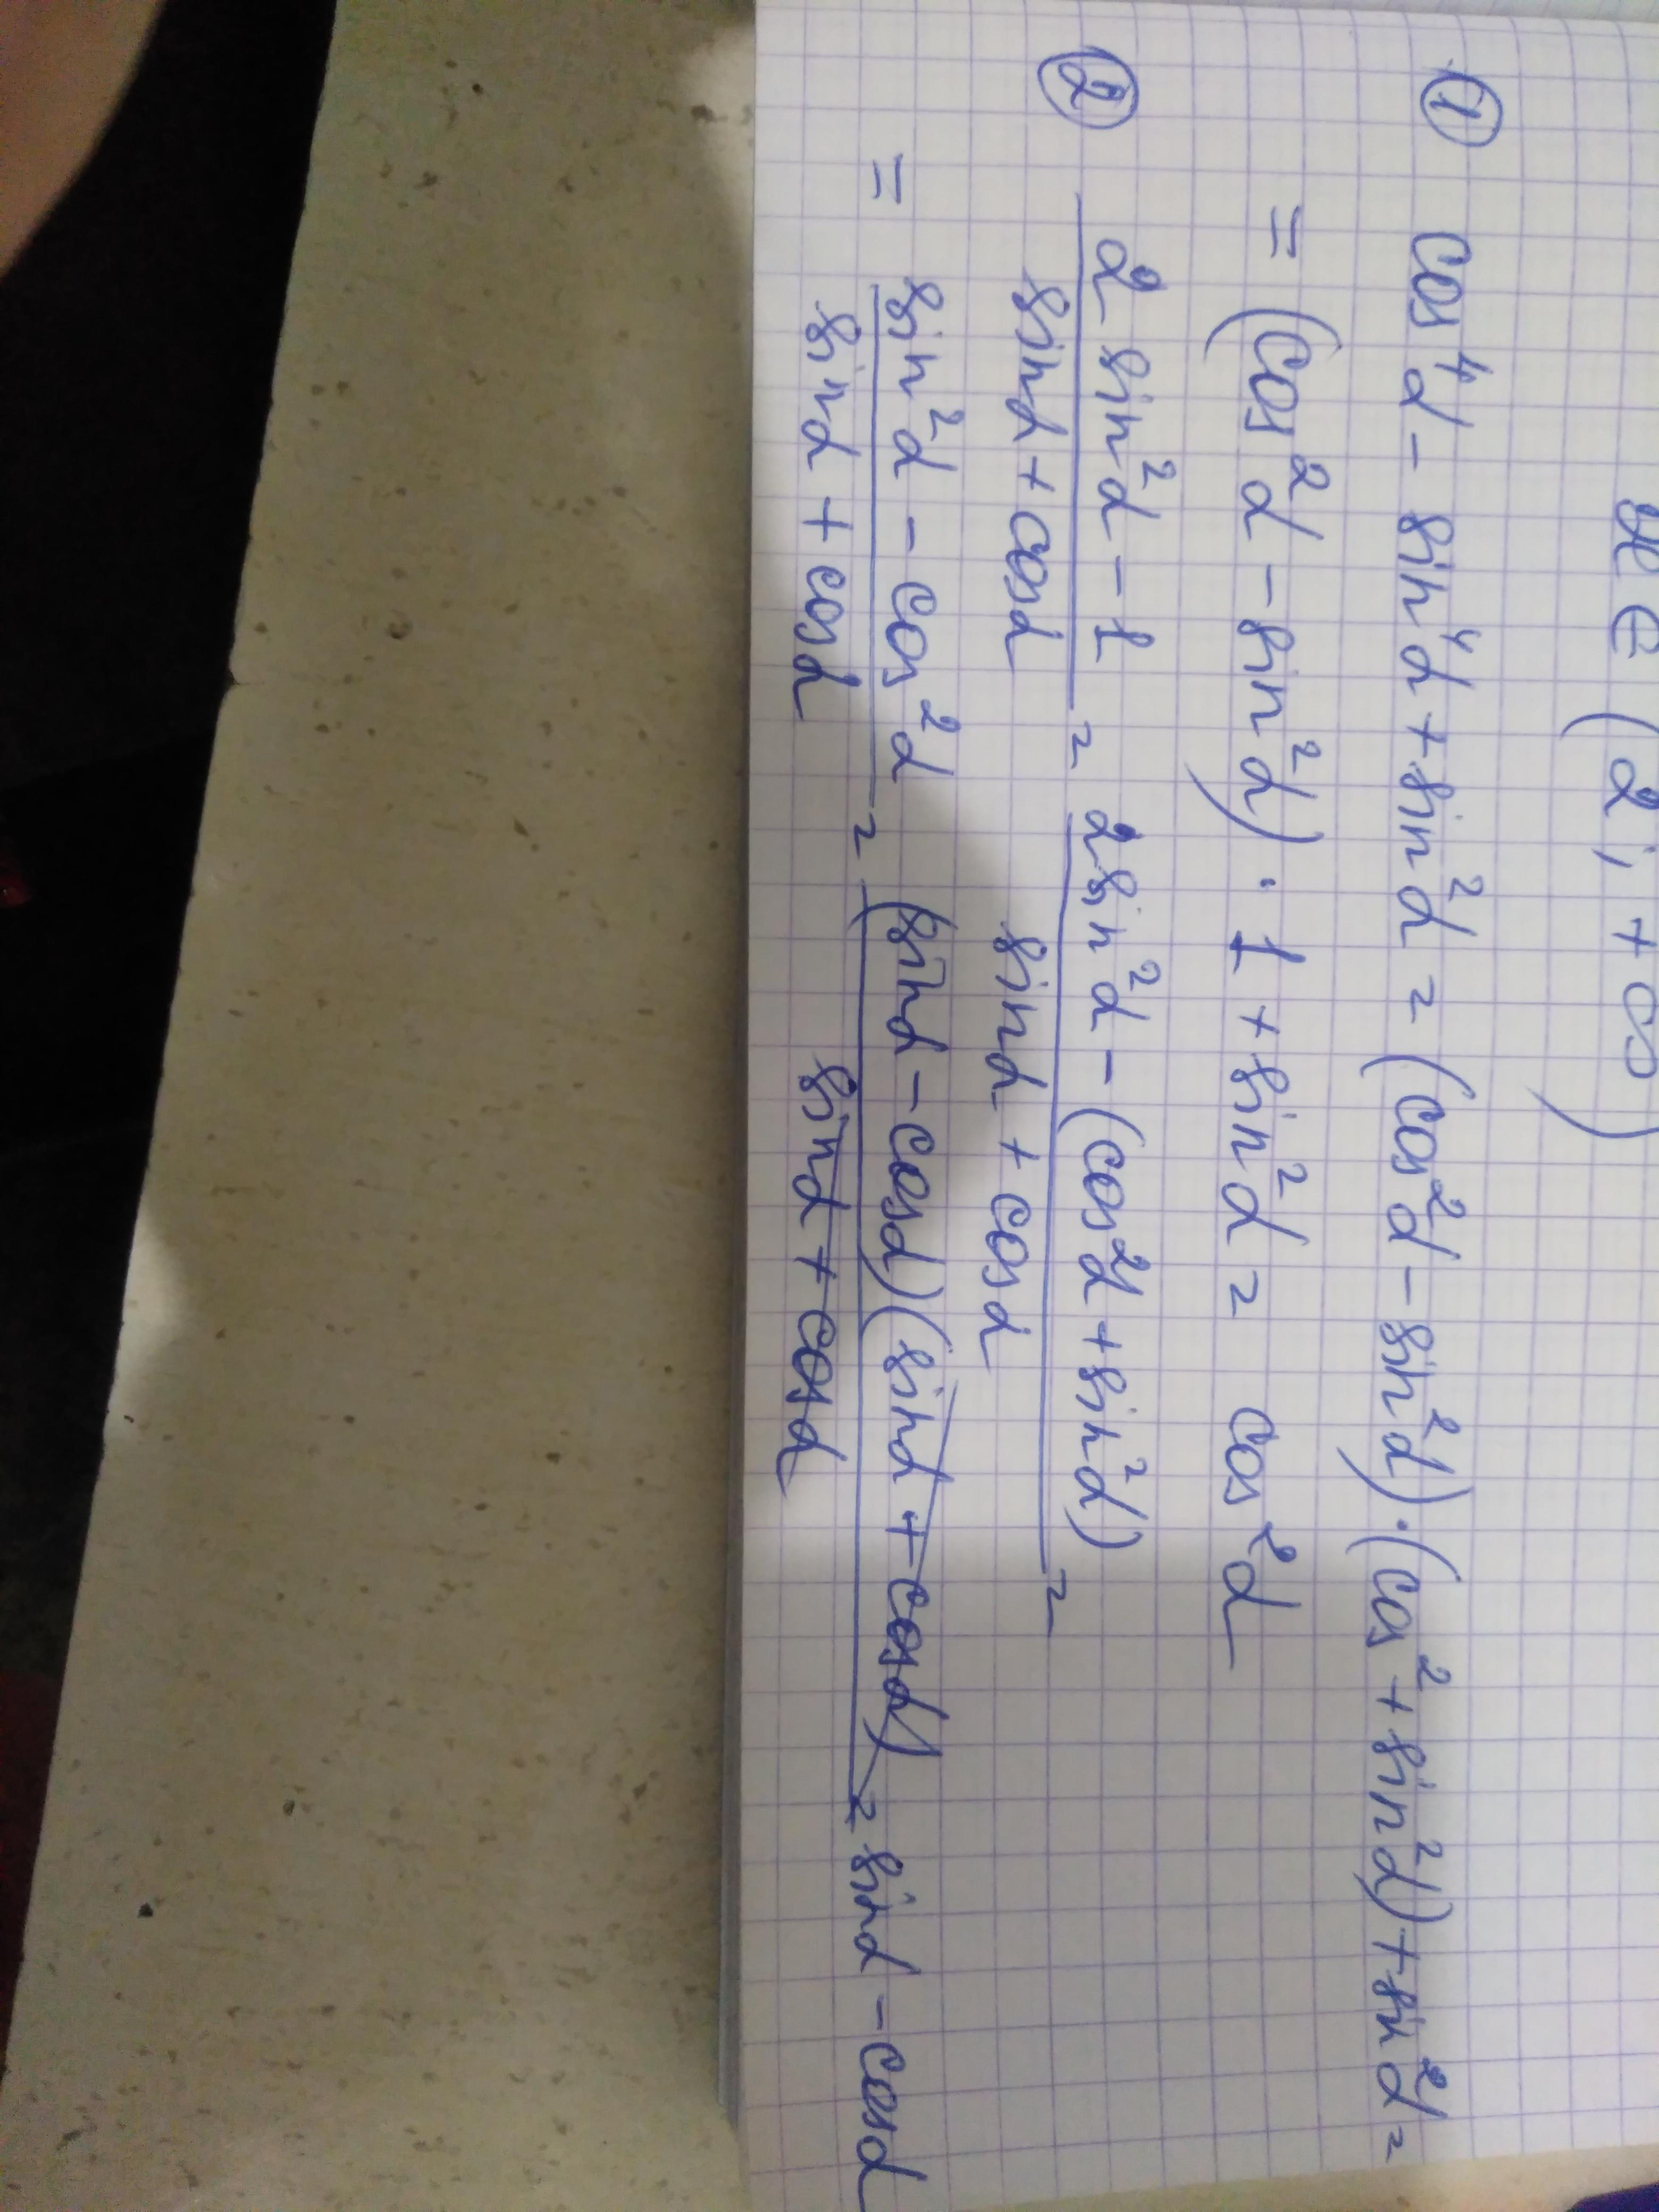 x ∈ (2; +∞)
① cos⁴α - sin⁴α + sin²α = (cos²α - sin²α)·(cos² + sin²α) + sin²α =
= (cos²α - sin²α)·1 + sin²α = cos²α
② (2 sin²α - 1)/(sinα + cosα) = (2sin²α - (cos²α + sin²α))/(sinα + cosα) =
= (sin²α - cos²α)/(sinα + cosα) = ((sinα - cosα)(sinα + cosα))/(sinα + cosα) = sinα - cosα